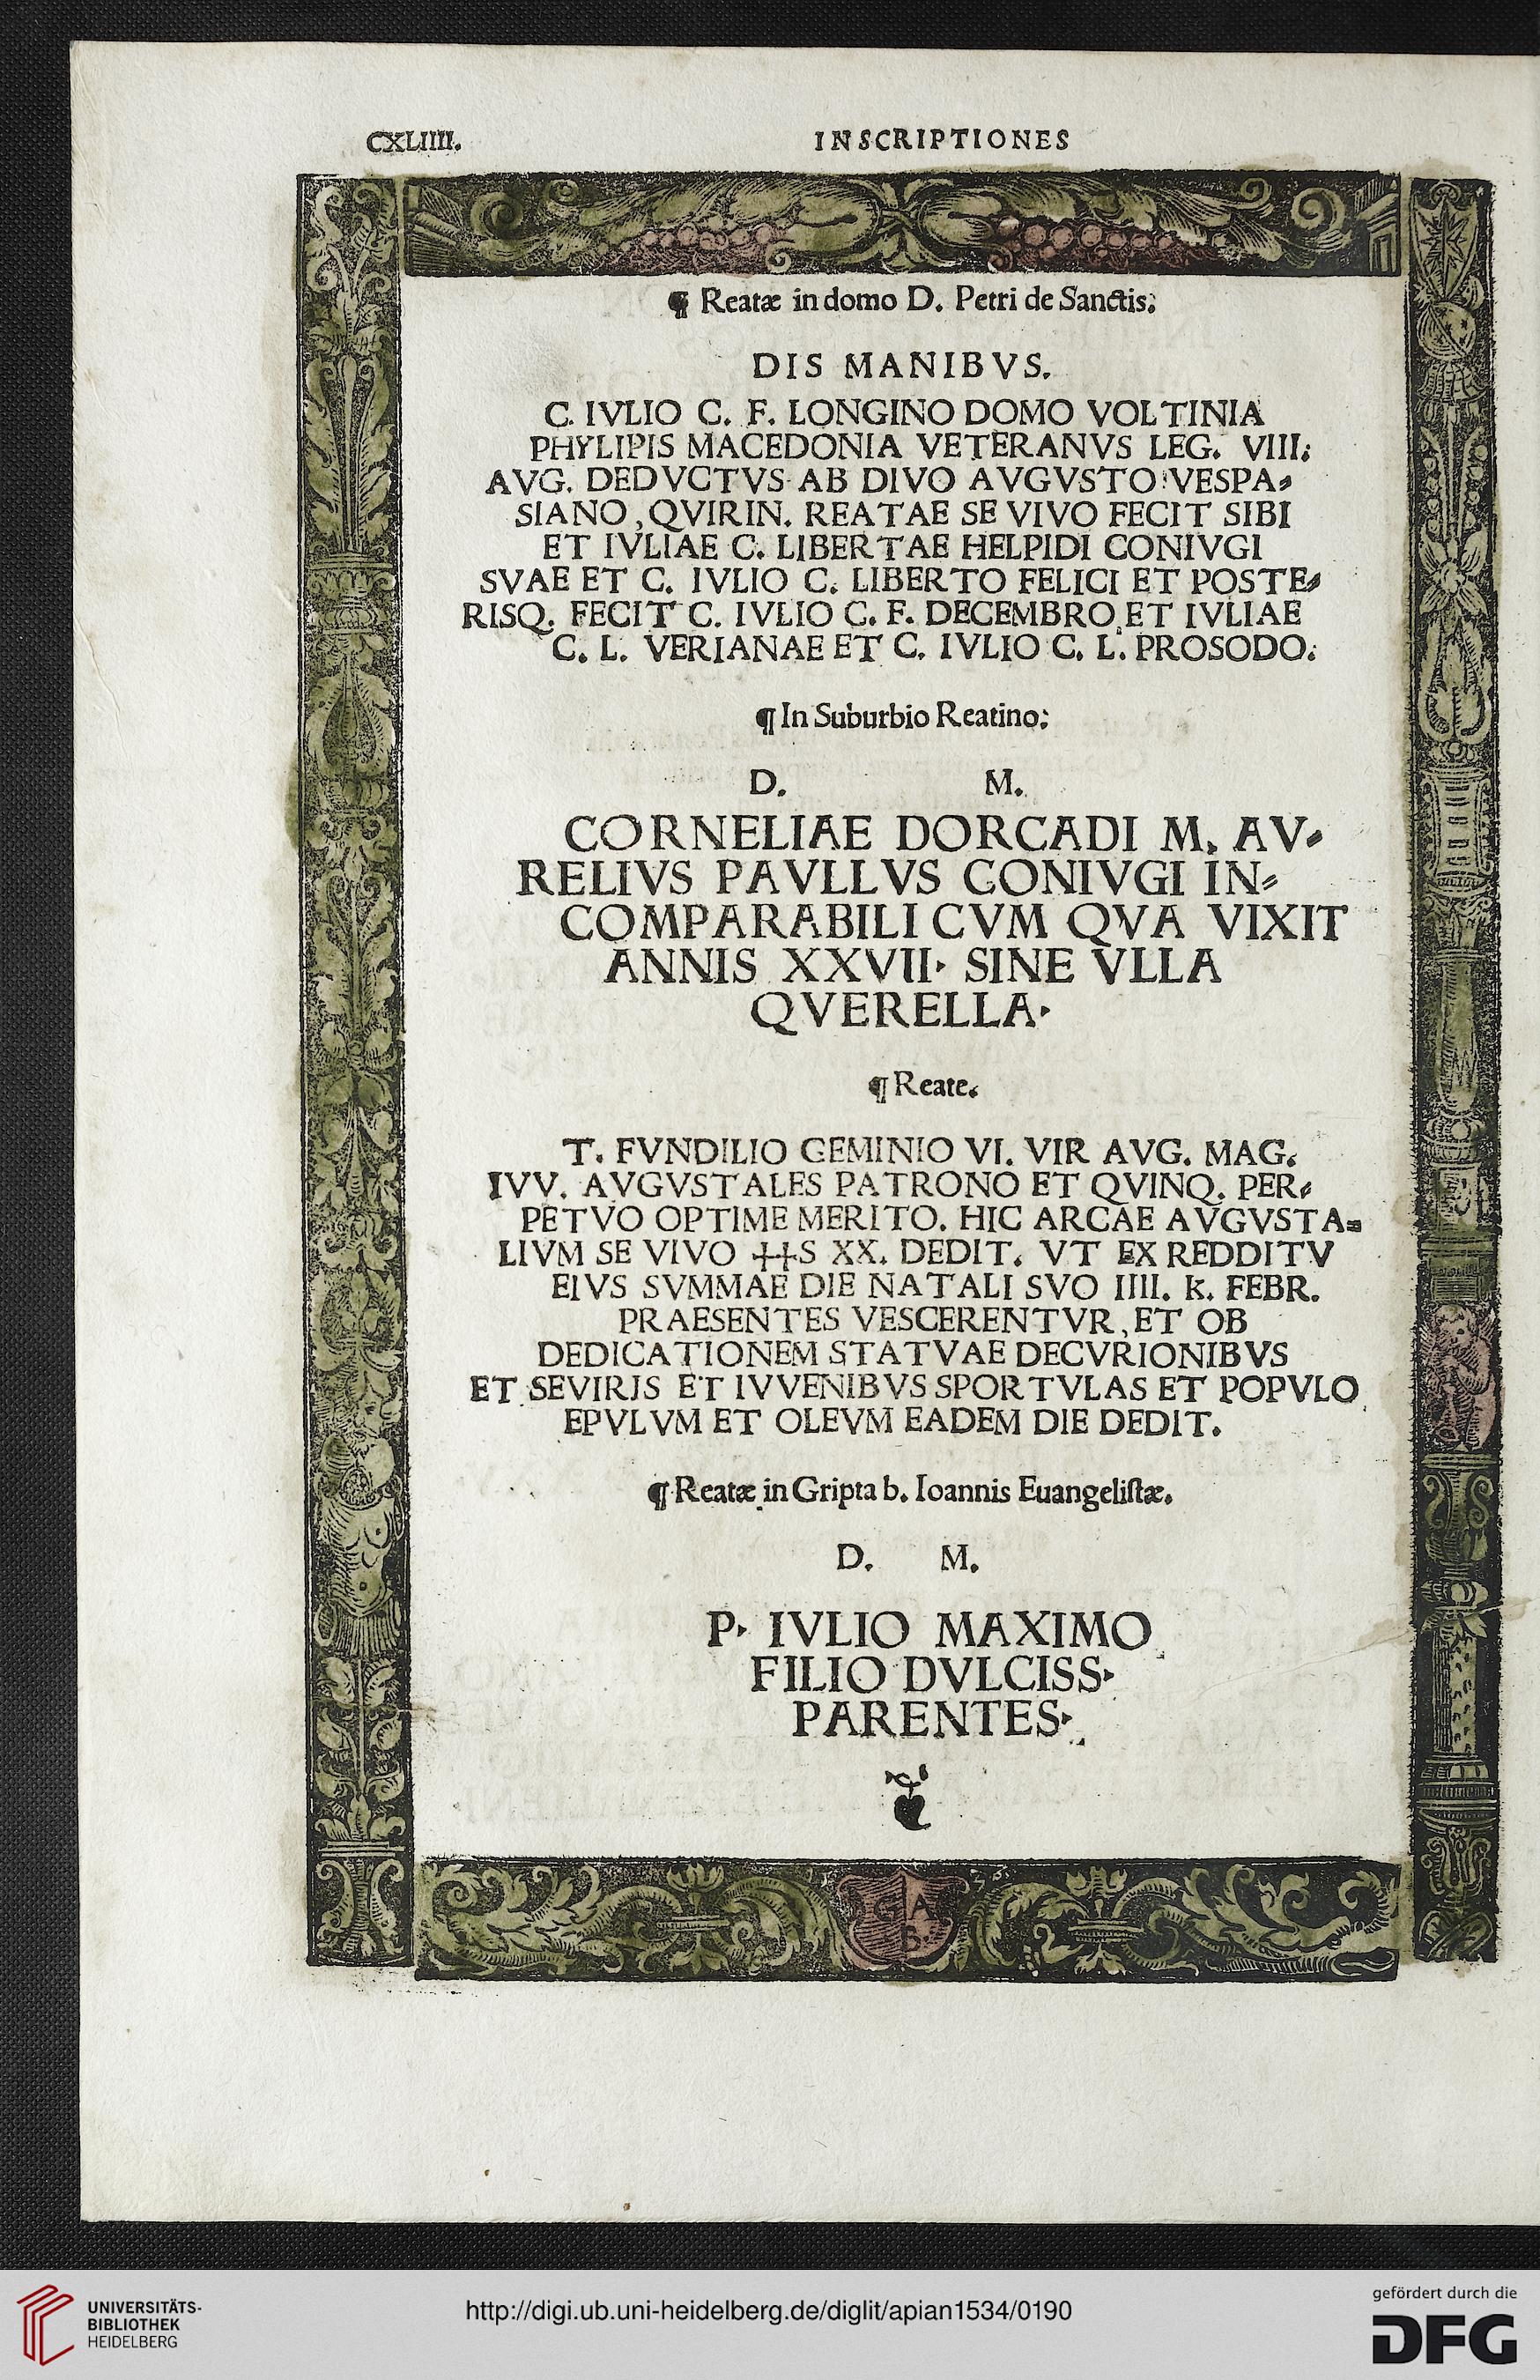 CXLIIII. INSCRIPTIONES
¶ Reatæ in domo D. Petri de Sanctis.
DIS MANIBVS.
C. IVLIO C. F. LONGINO DOMO VOLTINIA
PHYLIPIS MACEDONIA VETERANVS LEG. VIII.
AVG. DEDVCTVS AB DIVO AVGVSTO VESPA⸗
SIANO, QVIRIN. REATAE SE VIVO FECIT SIBI
ET IVLIAE C. LIBERTAE HELPIDI CONIVGI
SVAE ET C. IVLIO C. LIBERTO FELICI ET POSTE⸗
RISQ. FECIT C. IVLIO C. F. DECEMBRO ET IVLIAE
C. L. VERIANAE ET C. IVLIO C. L. PROSODO.
¶ In Suburbio Reatino.
D. M.
CORNELIAE DORCADI M. AV⸗
RELIVS PAVLLVS CONIVGI IN⸗
COMPARABILI CVM QVA VIXIT
ANNIS XXVII· SINE VLLA
QVERELLA·
¶ Reate.
T. FVNDILIO GEMINIO VI. VIR AVG. MAG.
IVV. AVGVSTALES PATRONO ET QVINQ. PER⸗
PETVO OPTIME MERITO. HIC ARCAE AVGVSTA⸗
LIVM SE VIVO ++S XX. DEDIT. VT EX REDDITV
EIVS SVMMAE DIE NATALI SVO IIII. K. FEBR.
PRAESENTES VESCERENTVR, ET OB
DEDICATIONEM STATVAE DECVRIONIBVS
ET SEVIRIS ET IVVENIBVS SPORTVLAS ET POPVLO
EPVLVM ET OLEVM EADEM DIE DEDIT.
¶ Reatæ in Gripta b. Ioannis Euangelistæ.
D. M.
P· IVLIO MAXIMO
FILIO DVLCISS·
PARENTES·
G A
B.
UNIVERSITÄTS-
BIBLIOTHEK
HEIDELBERG
http://digi.ub.uni-heidelberg.de/diglit/apian1534/0190
gefördert durch die
DFG